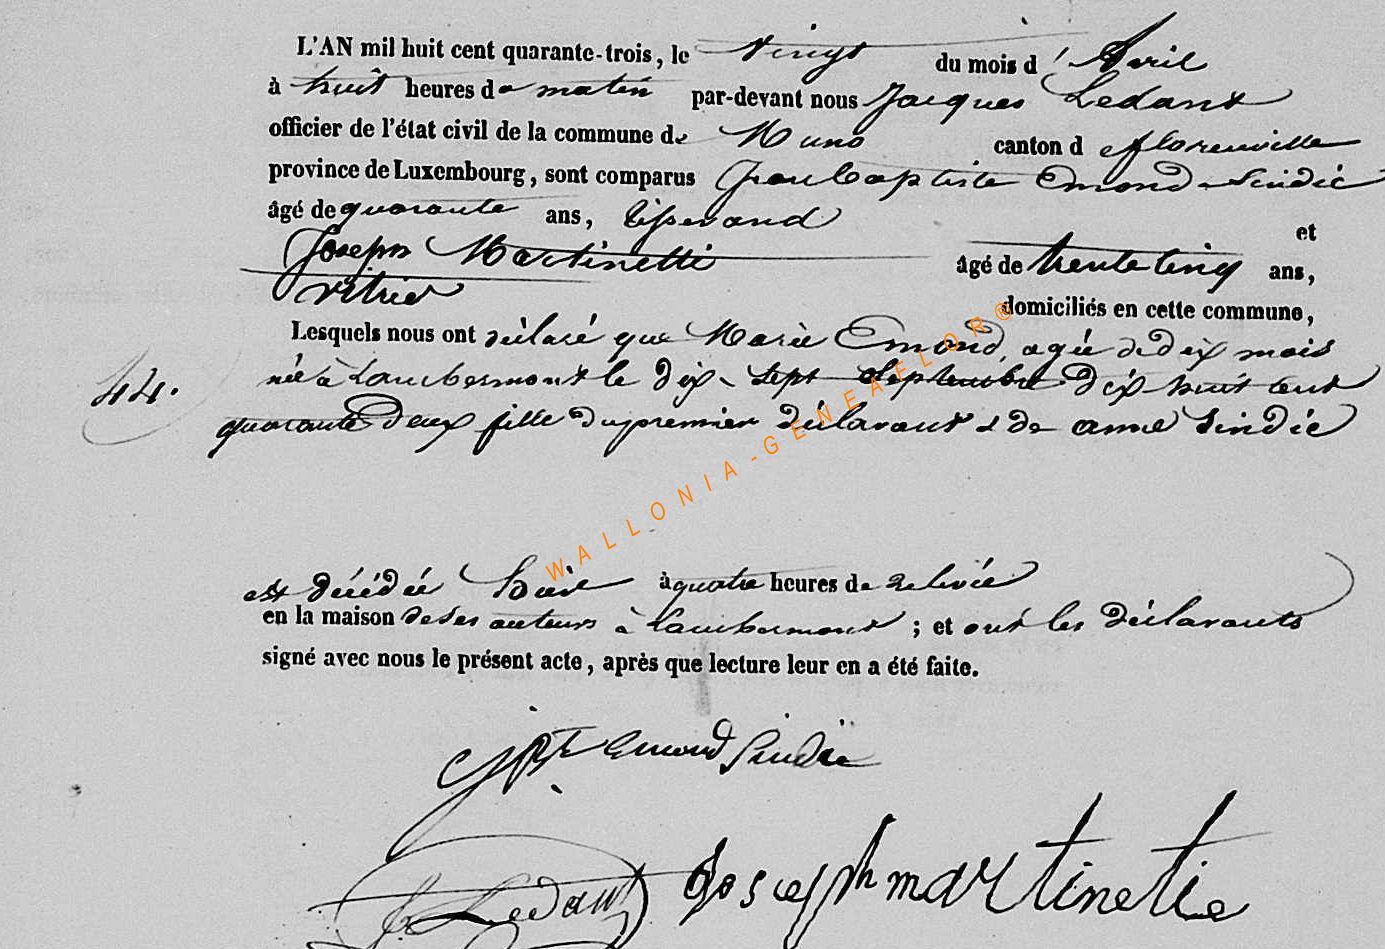 L'AN mil huit cent quarante-trois, le vingt du mois d'Avril
à huit heures du matin par-devant nous Jacques Ledant
officier de l'état civil de la commune de Muno canton d Florenville
province de Luxembourg, sont comparus Jean Baptiste Emond-Sindic
âgé de quarante ans, tisserand et
Joseph Martinetti âgé de trente cinq ans,
vitrier domiciliés en cette commune,
Lesquels nous ont déclaré que Marie Emond, agée de dix mois
née à Lambermont le dix-sept Septembre dix huit cent
44.
quarante deux fille du premier déclarant & de anne Sindic
est décédée hier à quatre heures de relevée
en la maison de ses auteurs à Lambermont ; et ont les déclarants
signé avec nous le présent acte, après que lecture leur en a été faite.
JBte Emond Sindic
J. Ledant Joseph martinetie
WALLONIA-GENEAFLOR®